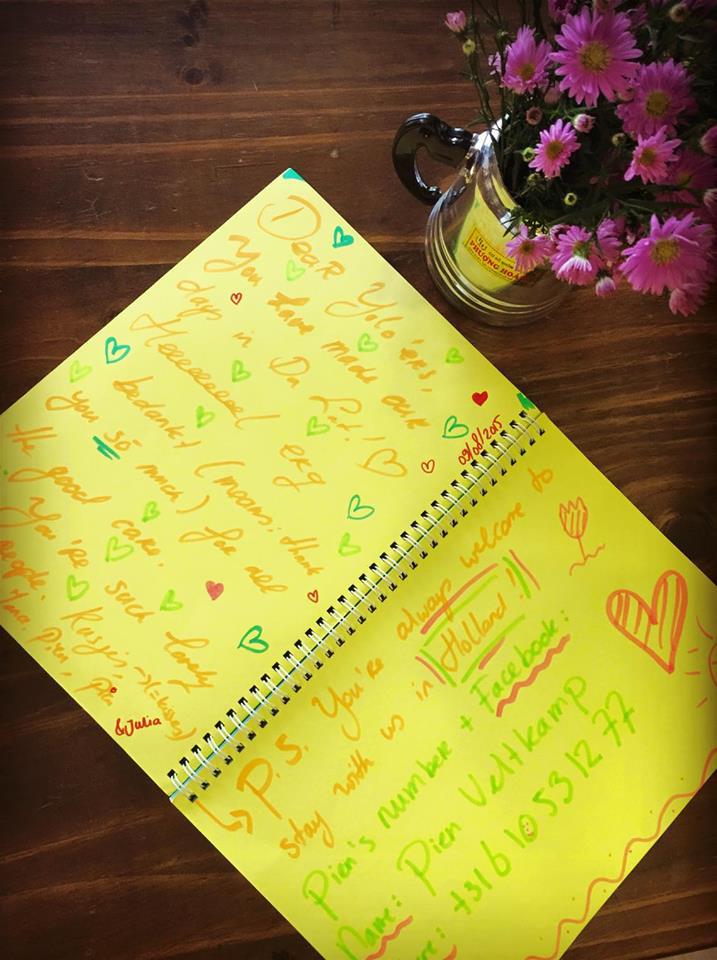 Dear Yolo'ers,
You have made our
days in Da Lat!
Heeeeeeeel erg
bedankt (means: thank
you so much) for all
the good care.
You're such lovely
people. Kusjes, → (=kisses)
Pien,
& Julia
09/08/2015
P.S. You're always welcome to
stay with us in Holland!
Pien's number + Facebook:
Name: Pien Veltkamp
+31 6 10 53 12 77
PHƯỢNG